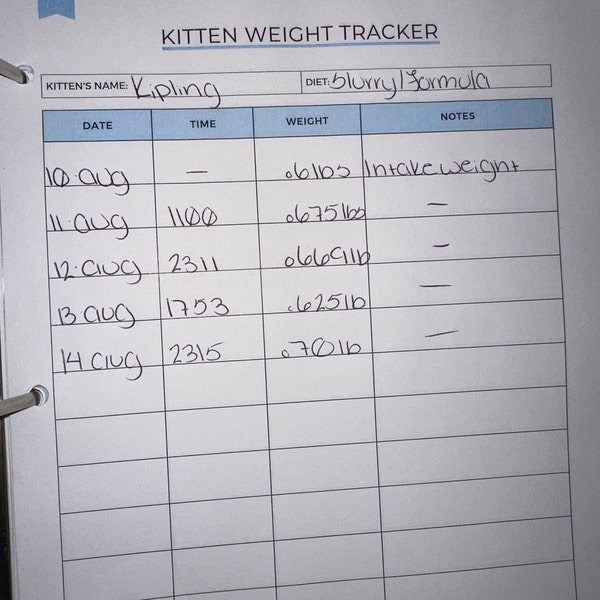 KITTEN WEIGHT TRACKER
KITTEN'S NAME: Kipling DIET: Slurry/Formula
DATE TIME WEIGHT NOTES
10·aug — .6lbs Intake weight
11·aug 1100 .675lbs —
12·aug 2311 .669lb —
13·aug 1753 .625lb —
14 aug 2315 .70lb —